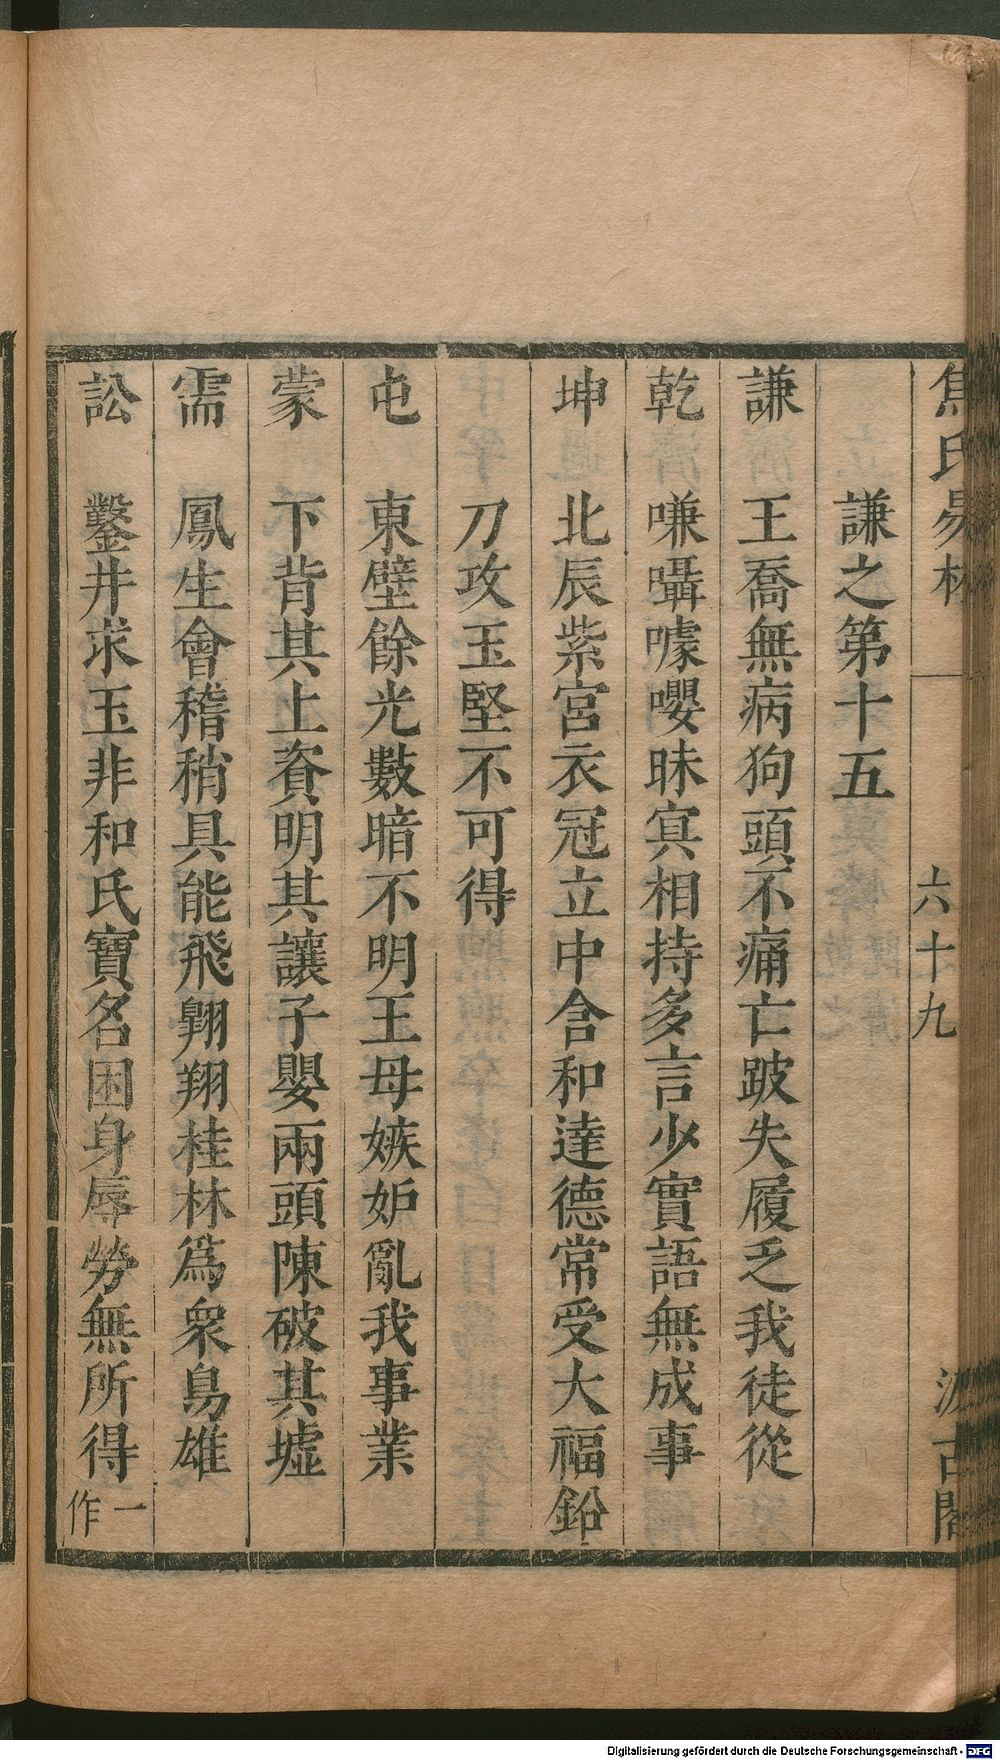 焦氏易林 六十九 汲古閣
謙之第十五
謙 王喬無病狗頭不痛亡跛失履乏我徒從
乾 嗛囁噱嚶昧㝠相持多言少實語無成事
坤 北辰紫宮衣冠立中含和達德常受大福鉛
刀攻玉堅不可得
屯 東壁餘光數暗不明王母嫉妒亂我事業
蒙 下背其上資明其讓子嬰兩頭陳破其墟
需 鳳生會稽稍具能飛翺翔桂林爲衆鳥雄
訟 鑿井求玉非和氏寶名困身辱勞無所得 一
作
Digitalisierung gefördert durch die Deutsche Forschungsgemeinschaft - DFG